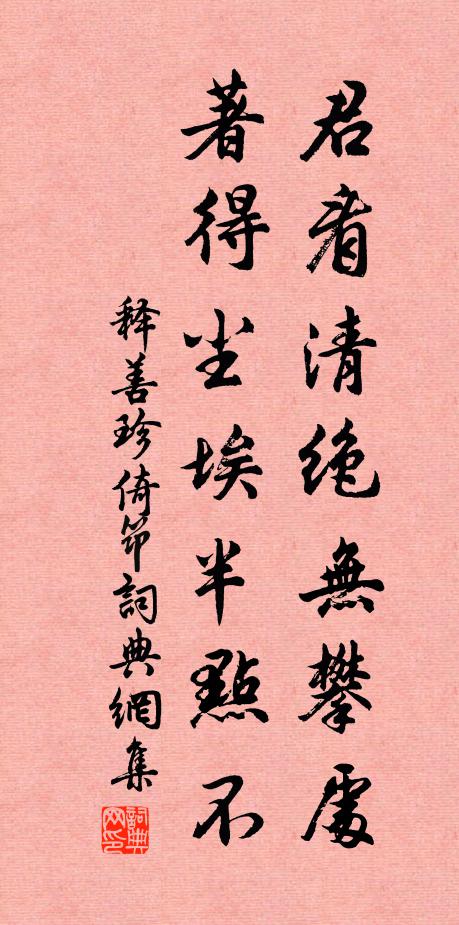 君看清絶無攀處
著得尘埃半點不
释善珍倚笻詞典網集
詞典网印